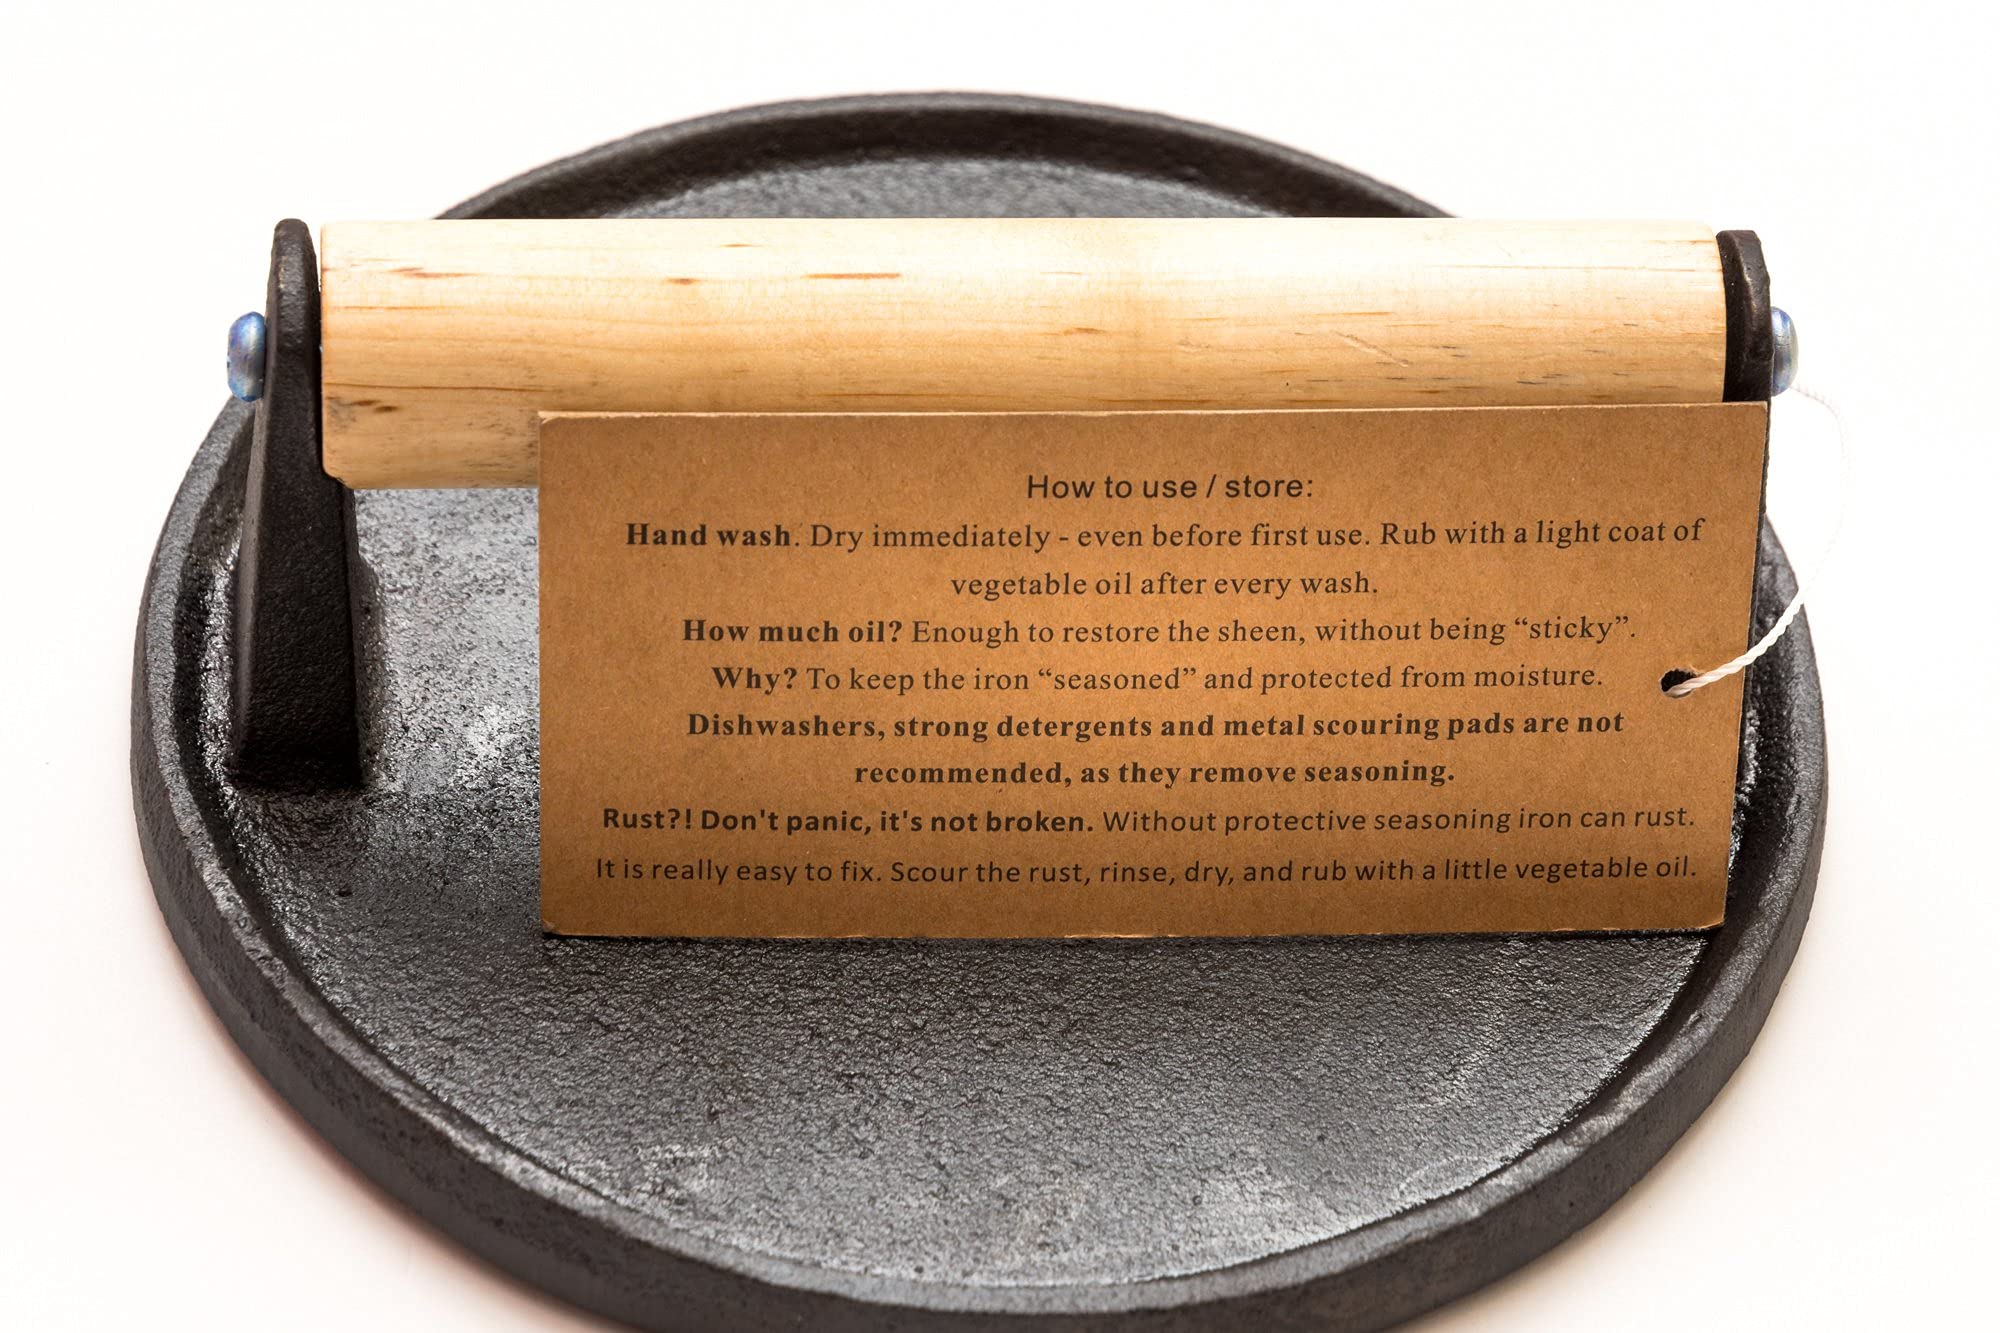 How to use / store:
Hand wash. Dry immediately - even before first use. Rub with a light coat of
vegetable oil after every wash.
How much oil? Enough to restore the sheen, without being “sticky”.
Why? To keep the iron “seasoned” and protected from moisture.
Dishwashers, strong detergents and metal scouring pads are not
recommended, as they remove seasoning.
Rust?! Don't panic, it's not broken. Without protective seasoning iron can rust.
It is really easy to fix. Scour the rust, rinse, dry, and rub with a little vegetable oil.